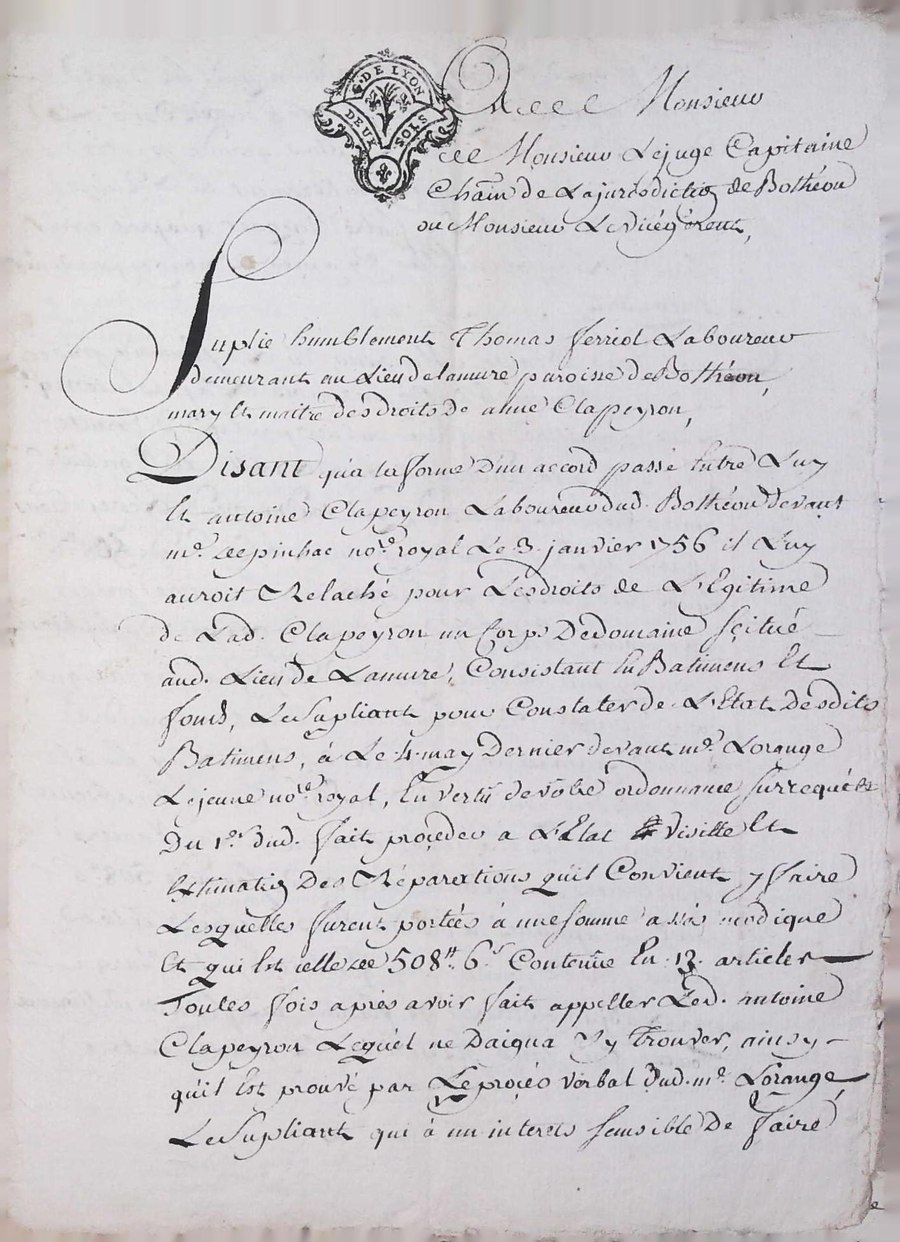 G. DE LYON
DEUX SOLS
A Monsieur
Monsieur Lejuge Capitaine
Chãin de Lajurisdictiõ de Bothéon
ou Monsieur Le vicegerent,
Suplie humblement Thomas ferriol Laboureur
demeurant au Lieu de lamure paroisse de Bothéon,
mary Et maitre des droits de anne Clapeyron,
Disant qu'a la forme d'un accord passé Entre Luy
Et antoine Clapeyron Laboureur dud. Bothéon devant
me. no.re royal Le 3. janvier 1756 il Luy
auroit Relaché pour Les droits de L'Egitime
de Lad. Clapeyron un Corps De domaine scitué
aud. Lieu de Lamure, Consistant En Batimens Et
fonds, Le Supliant pour Constater de L'Etat Desdits
Batimens, à Le 4. may Dernier devant me. Lorange
Lejeune no.re royal, En vertû de votre ordonnance sur requête
Du 1.er dud. fait proçeder a L'Etat visitte Et
Estimatiõ Des Réparations qu'il Convient y faire
Lesquelles furent portées à une somme assés modique
Et qui Est celle de 508tt. 6s. Contenüe En 13. articles
Toutes fois aprés avoir fait appeller Led. antoine
Clapeyron Lequel ne Daigna s'y Trouver, ainsy
qu'il Est prouvé par Le procés verbal dud. me. Lorange,
Le Supliant qui à un interets sensible De faire